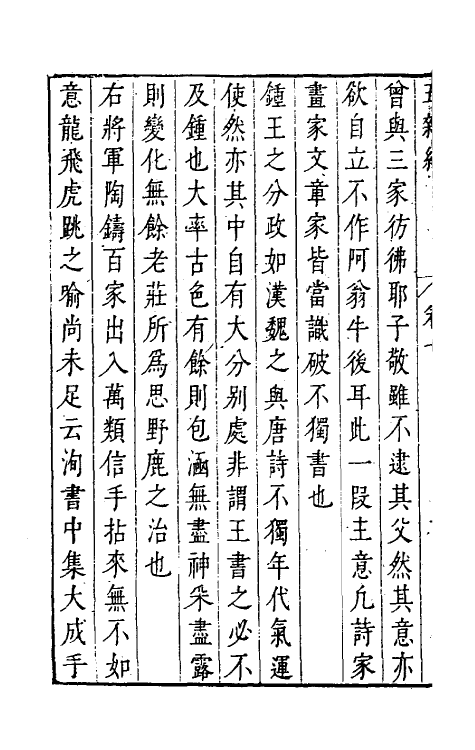 曾與三家彷彿耶子敬雖不逮其父然其意亦
欲自立不作阿翁牛後耳此一段主意凡詩家
畫家文章家皆當識破不獨書也
鍾王之分政如漢魏之與唐詩不獨年代氣運
使然亦其中自有大分别處非謂王書之必不
及鍾也大率古色有餘則包涵無盡神采盡露
則變化無餘老莊所爲思野鹿之治也
右將軍陶鑄百家出入萬類信手拈來無不如
意龍飛虎跳之喻尚未足云洵書中集大成手